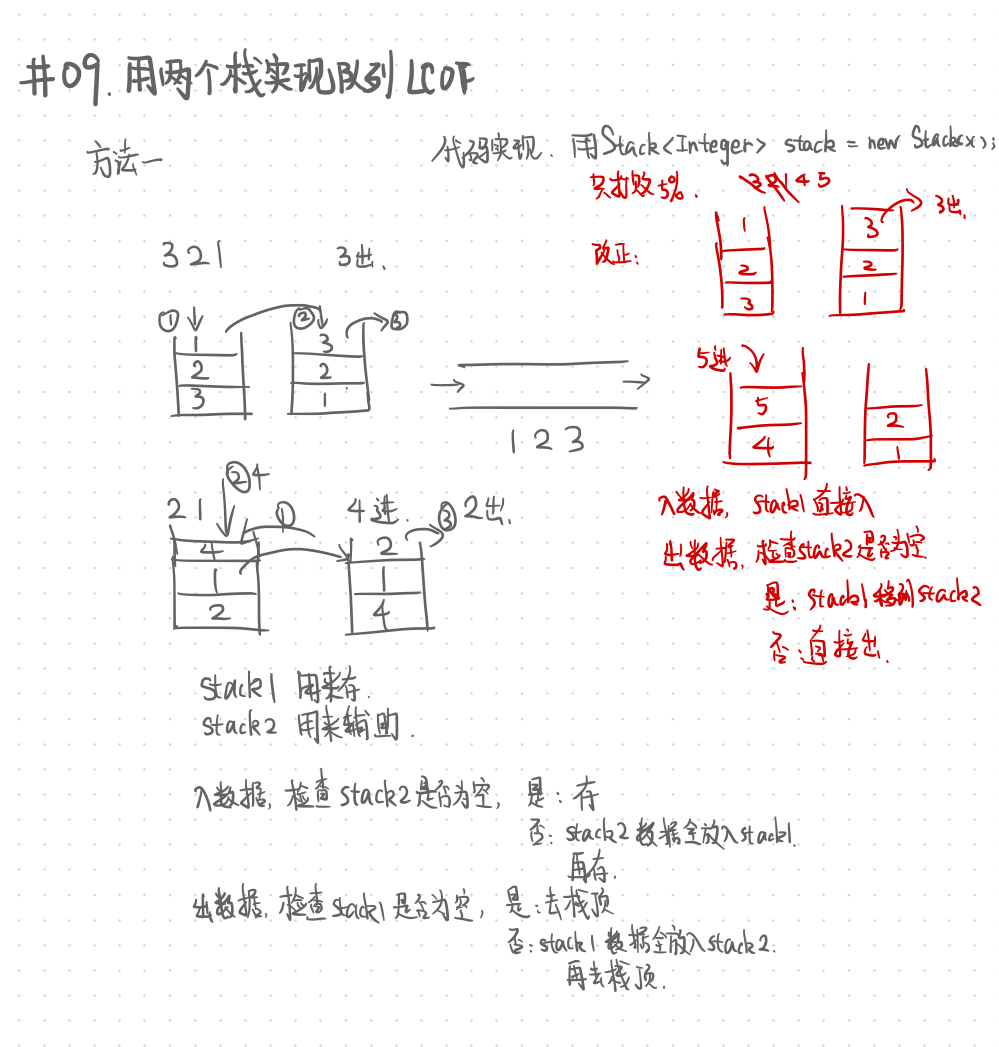 #09. 用两个栈实现队列 LCOF
方法一
代码实现. 用Stack<Integer> stack = new Stack<x>();
只打败5%.
321 4 5
改正:
1
2
3
3
2
1
3出.
321
3出.
①
1
2
3
②
3
2
1
③
1 2 3
5进
5
4
2
1
21
②4
①
4进.
③
2出.
4
1
2
2
1
4
入数据, stack1直接入
出数据, 检查stack2是否为空
是: stack1移到stack2
否: 直接出.
stack1 用来存.
stack2 用来辅助.
入数据, 检查stack2是否为空, 是: 存
否: stack2数据全放入stack1.
再存.
出数据, 检查stack1是否为空, 是: 去栈顶
否: stack1数据全放入stack2.
再去栈顶.